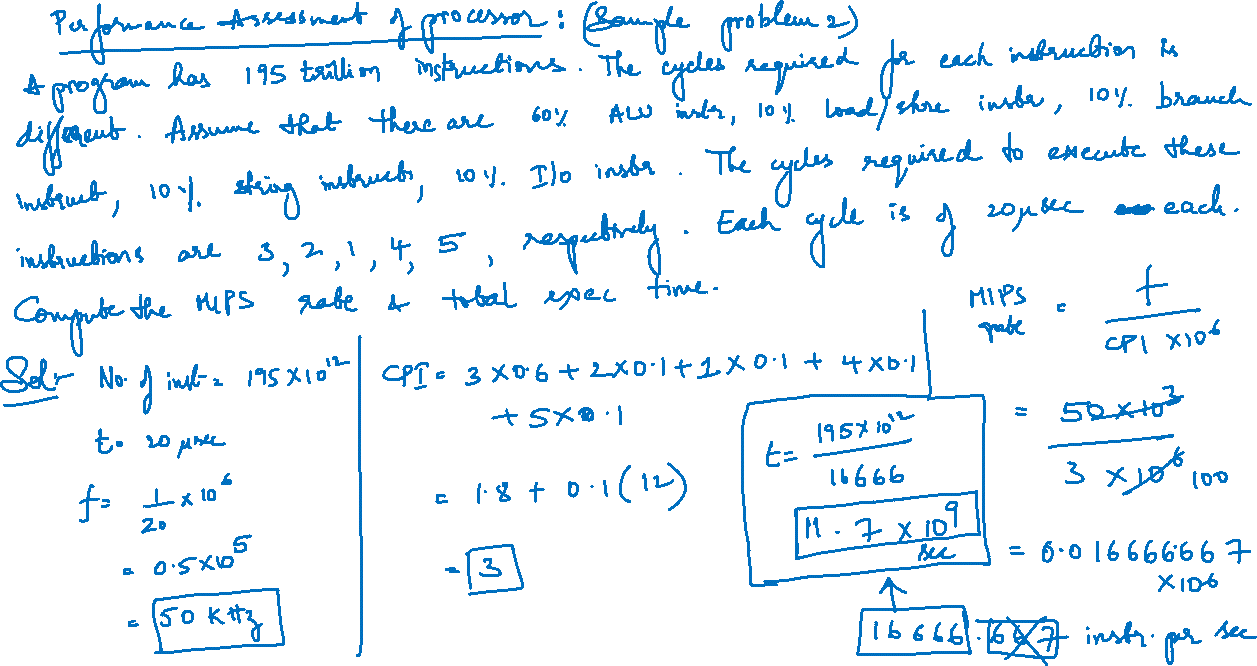 Performance Assessment of processor : (Sample problem 2)
A program has 195 trillion instructions. The cycles required for each instruction is
different. Assume that there are 60% ALU instr, 10% load/store instr, 10% branch
instruct, 10% string instructs, 10% I/o instr. The cycles required to execute these
instructions are 3, 2, 1, 4, 5, respectively. Each cycle is of 20 μsec each.
Compute the MIPS rate & total exec time.
Sol:- No. of inst = 195 X 10^12
t = 20 μsec
f = 1/20 x 10^6
= 0.5 X 10^5
= 50 KHz
CPI = 3 X 0.6 + 2 X 0.1 + 1 X 0.1 + 4 X 0.1
+ 5 X 0.1
= 1.8 + 0.1 (12)
= 3
t = 195 X 10^12 / 16666
11.7 X 10^9
sec
MIPS rate = f / CPI X 10^6
= 50 X 10^3 / 3 X 10^6 100
= 0.016666667
X 10^6
16666.667 instr. per sec